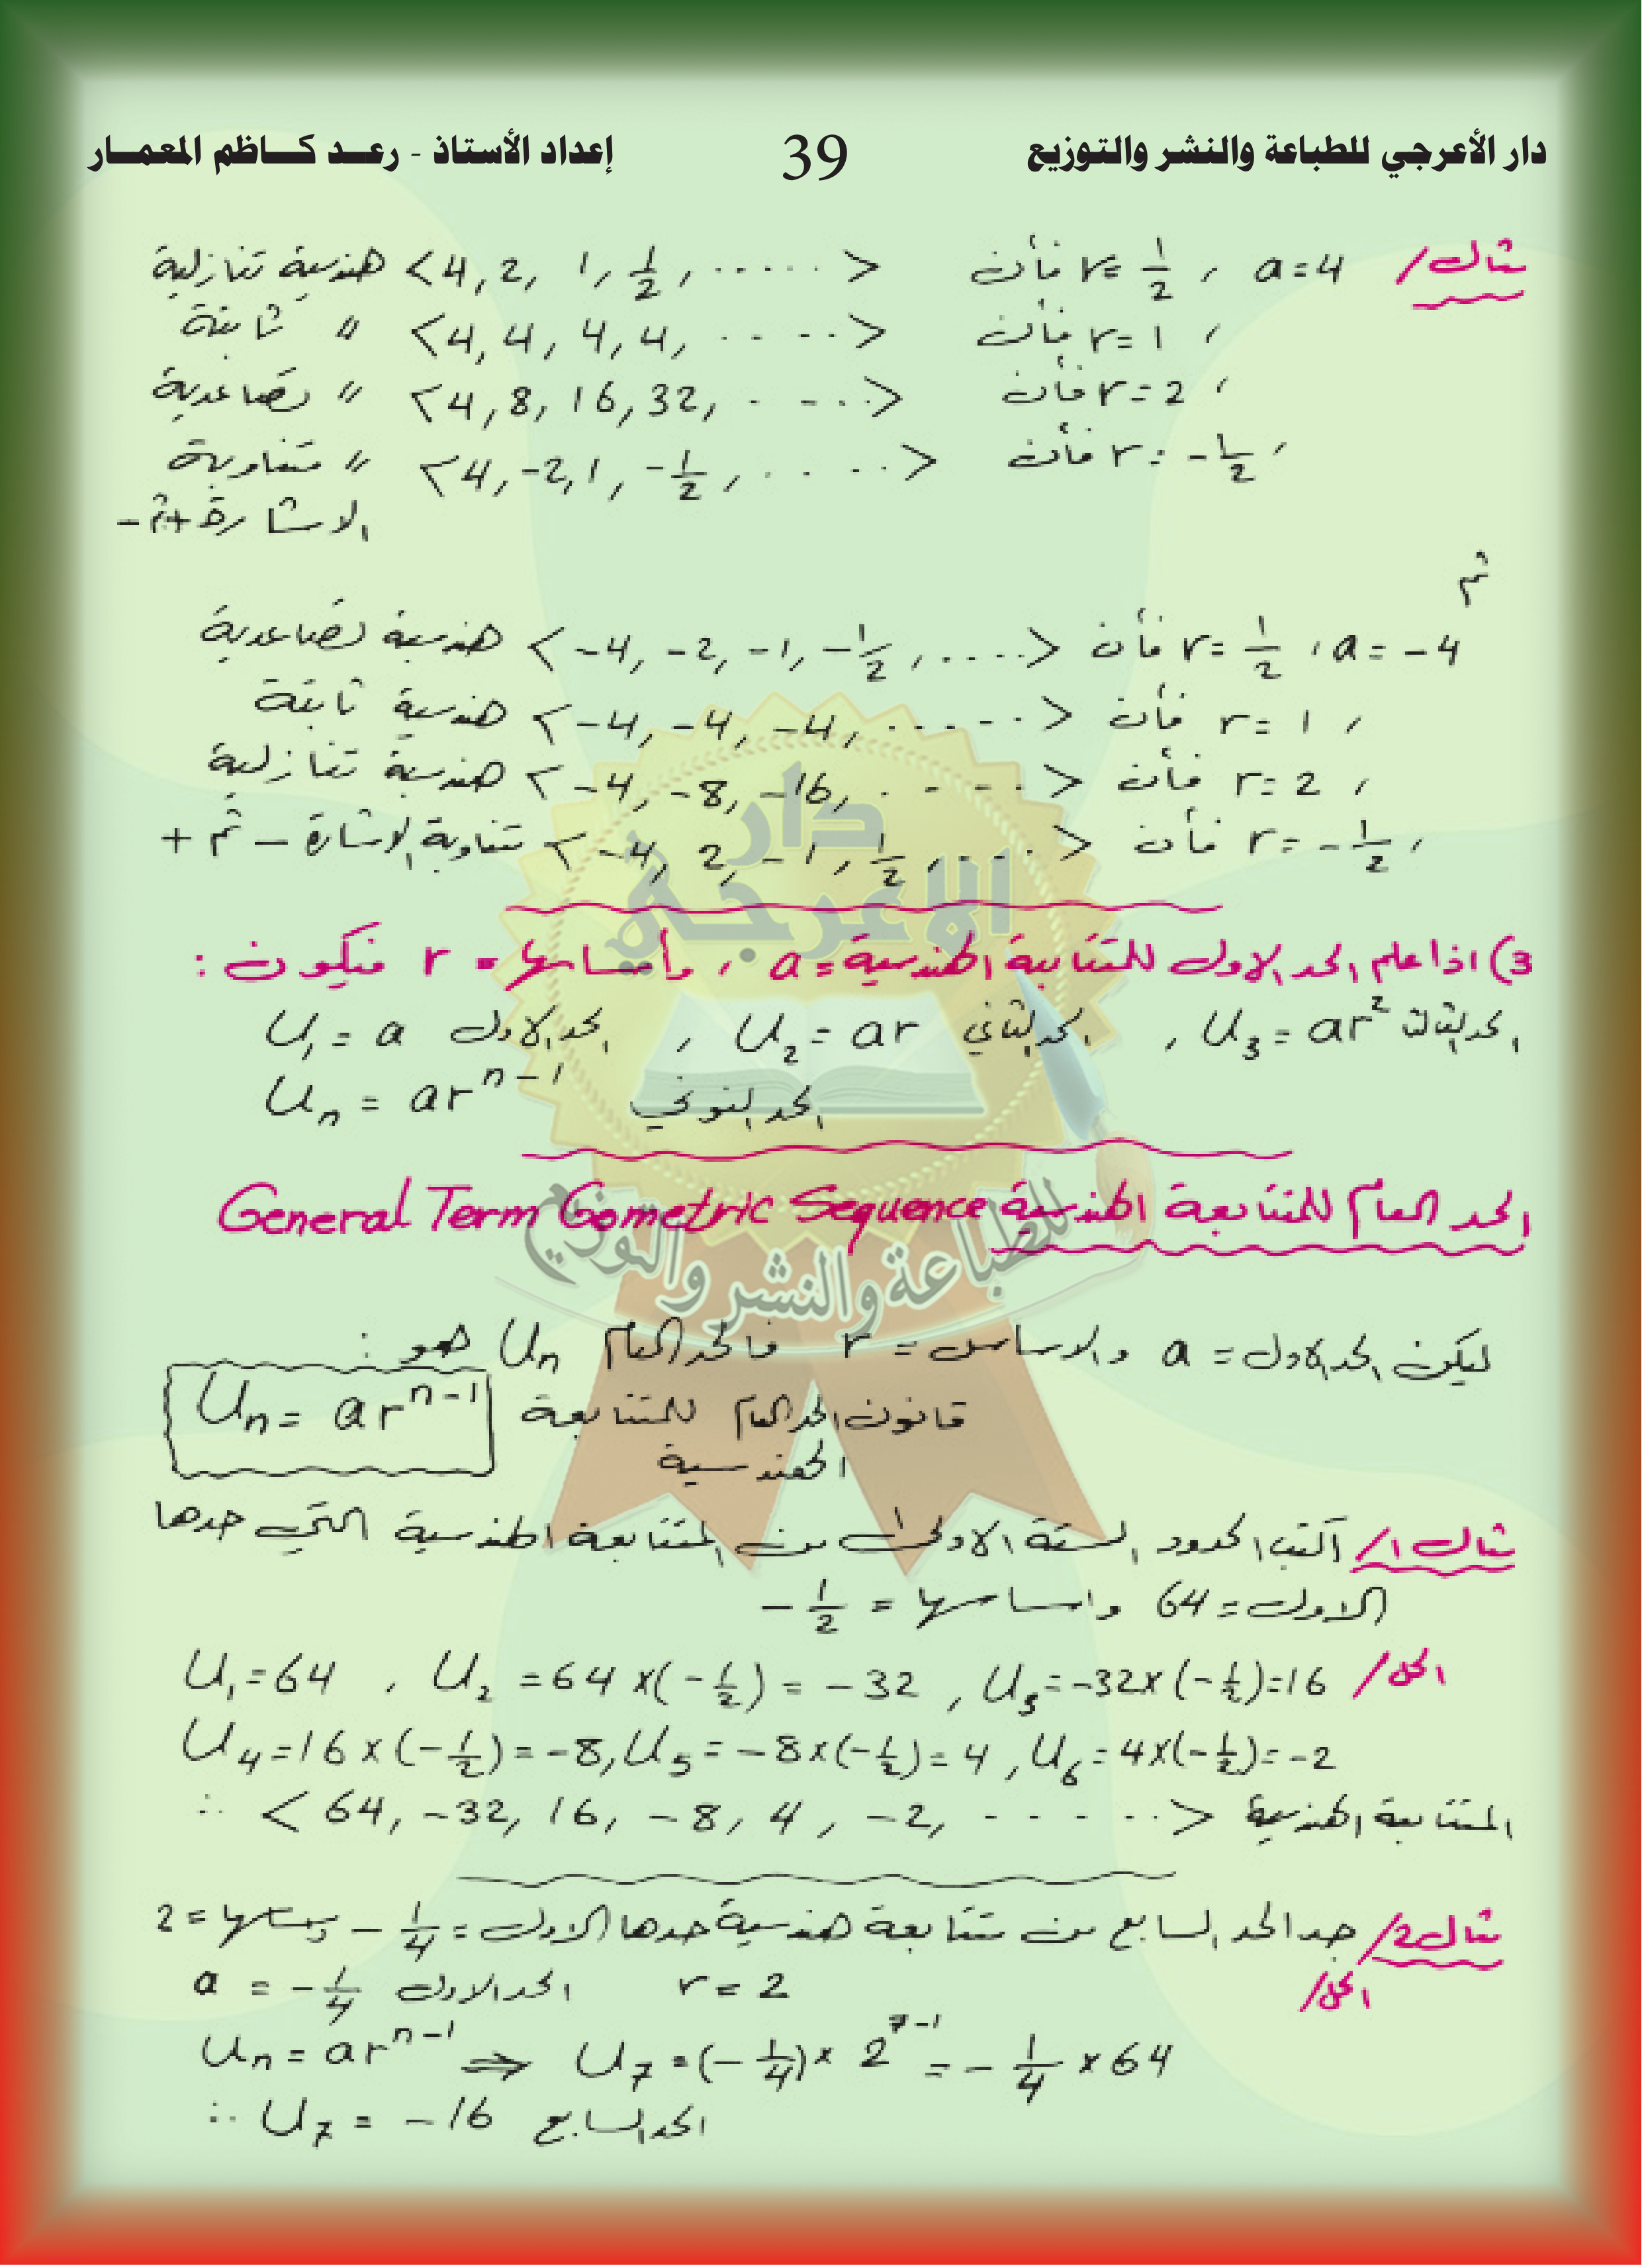 دار الأعرجي للطباعة والنشر والتوزيع 39 إعداد الأستاذ - رعد كاظم المعمار
مثال/ a=4 , r=1/2 فأن <4, 2, 1, 1/2, .....> هندسية تنازلية
, r=1 فأن <4, 4, 4, 4, ....> " ثابتة
, r=2 فأن <4, 8, 16, 32, ....> " تصاعدية
, r=-1/2 فأن <4, -2, 1, -1/2, ....> " متناوبة
الاشارة + ثم -
ثم
a=-4 , r=1/2 فأن <-4, -2, -1, -1/2, ....> هندسية تصاعدية
, r=1 فأن <-4, -4, -4, .....> هندسية ثابتة
, r=2 فأن <-4, -8, -16, ....> هندسية تنازلية
, r=-1/2 فأن <-4, 2, -1, 1/2, ....> تناوبية الاشارة - ثم +
3) اذا علم الحد الاول للمتتابعة الهندسية = a ، وأساسها = r فيكون :
U₁ = a الحد الاول , U₂ = ar الحد الثاني , U₃ = ar² الحد الثالث
Uₙ = arⁿ⁻¹ الحد النوني
الحد العام للمتتابعة الهندسية General Term Gometric Sequence
ليكن الحد الاول = a والاساس = r فالحد العام Uₙ هو :
قانون الحد العام للمتتابعة Uₙ = arⁿ⁻¹
الهندسية
مثال 1/ أكتب الحدود الستة الاولى من المتتابعة الهندسية التي حدها
الاول = 64 واساسها = -1/2
الحل/ U₁=64 , U₂ = 64×(-1/2) = -32 , U₃=-32×(-1/2)=16
U₄=16×(-1/2)=-8, U₅=-8×(-1/2)=4 , U₆=4×(-1/2)=-2
∴ <64, -32, 16, -8, 4, -2, .....> المتتابعة الهندسية
مثال 2/ جد الحد السابع من متتابعة هندسية حدها الاول = -1/4 واساسها = 2
الحل/ a = -1/4 الحد الاول r = 2
Uₙ = arⁿ⁻¹ ⇒ U₇ = (-1/4)× 2⁷⁻¹ = -1/4 × 64
∴ U₇ = -16 الحد السابع
دار
الاعرجي
للطباعة والنشر والتوزيع